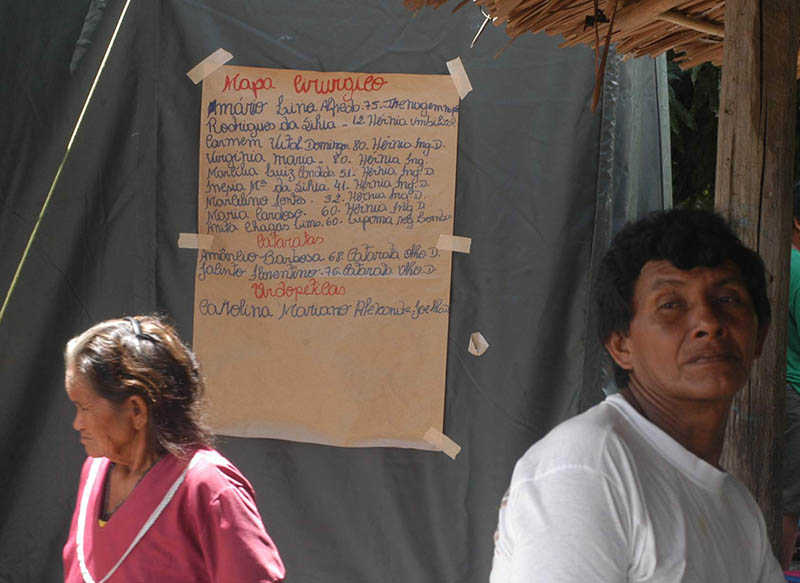 Mapa Cirurgico
Mário Lino Alfredo. 75.
Rodrigues da Silva - 12. Hérnia Umbilical
Carmem Vital Domingo. 80. Hérnia Ing D.
Virginia Maria - 80. Hérnia Ing.
Marcilia Luiz Candida 51. Hérnia Ing. D.
Inezia Mª da Silva. 41. Hérnia Ing. D.
Marcilino Fontes. 32. Hérnia Ing. D
Maria Cardoso. 60. Hérnia Ing. D
Anita Chagas Lima. 60. Lipoma reg Lombar
Cataratas
Amâncio Barbosa. 68. Catarata Olho D.
Jacinto Florentino. 76. Catarata Olho D
Ortopeticas
Carolina Mariano Alexandre. Joelho